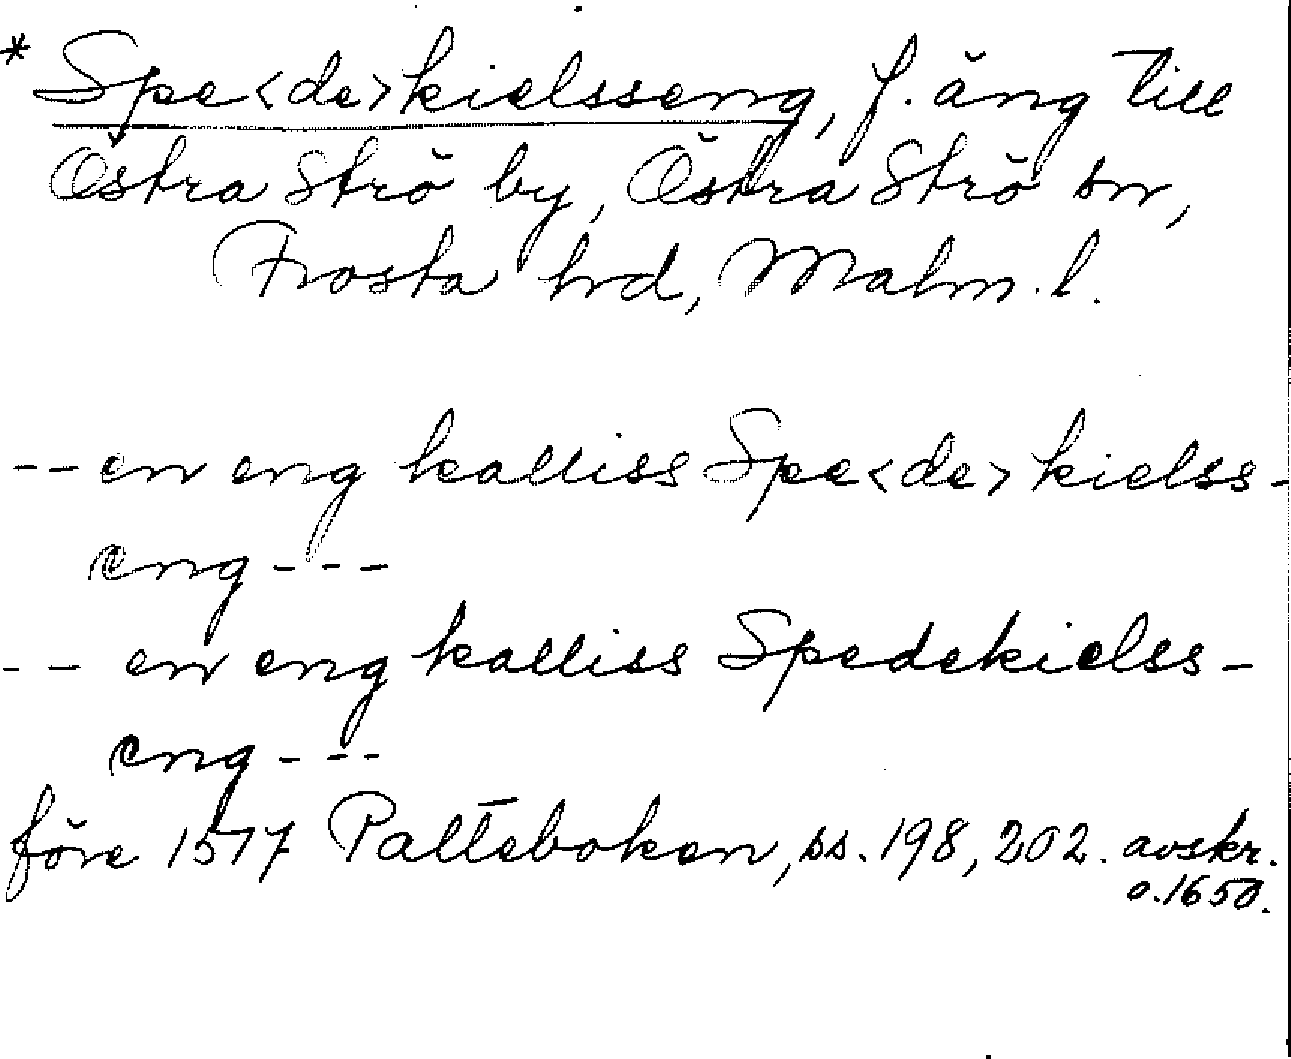 * Spe<de>kielsseng, f. äng till
Östra Strö by, Östra Strö sn,
Frosta hrd, Malm. l.
-- en eng kalliss Spe<de>kielss-
eng ---
-- en eng kalliss Spedekielss-
eng ---
före 1577 Palteboken, ss. 198, 202. avskr.
o. 1650.